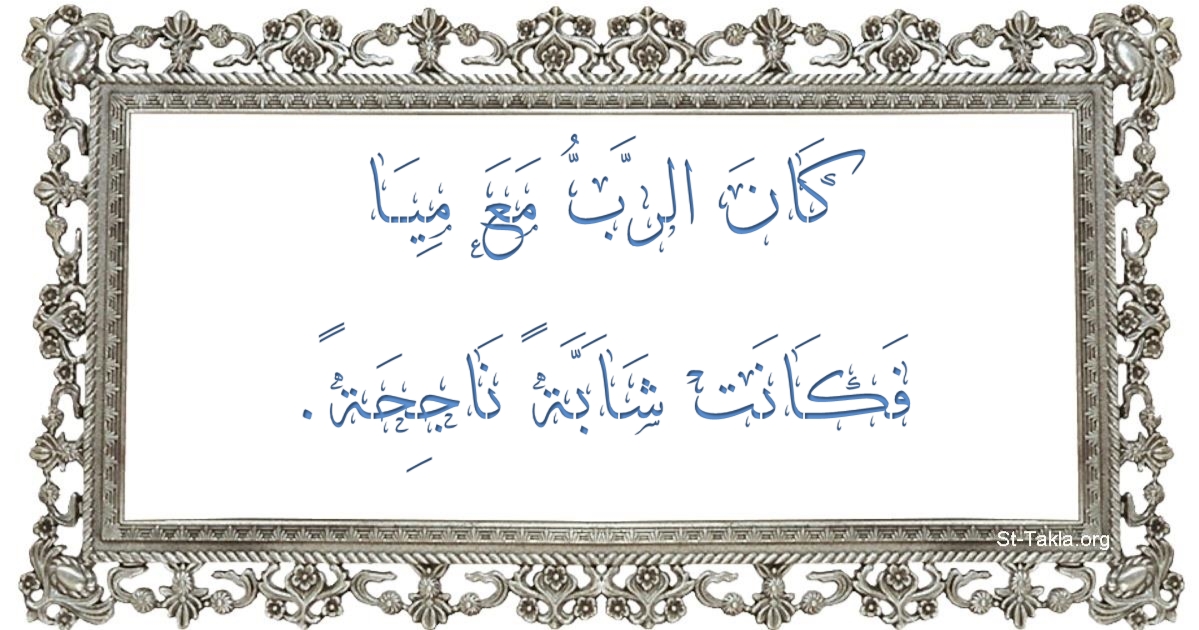 كَانَ الرَّبُّ مَعَ مِيَا
فَكَانَت شَابَّةً نَاجِحَةً.
St-Takla.org